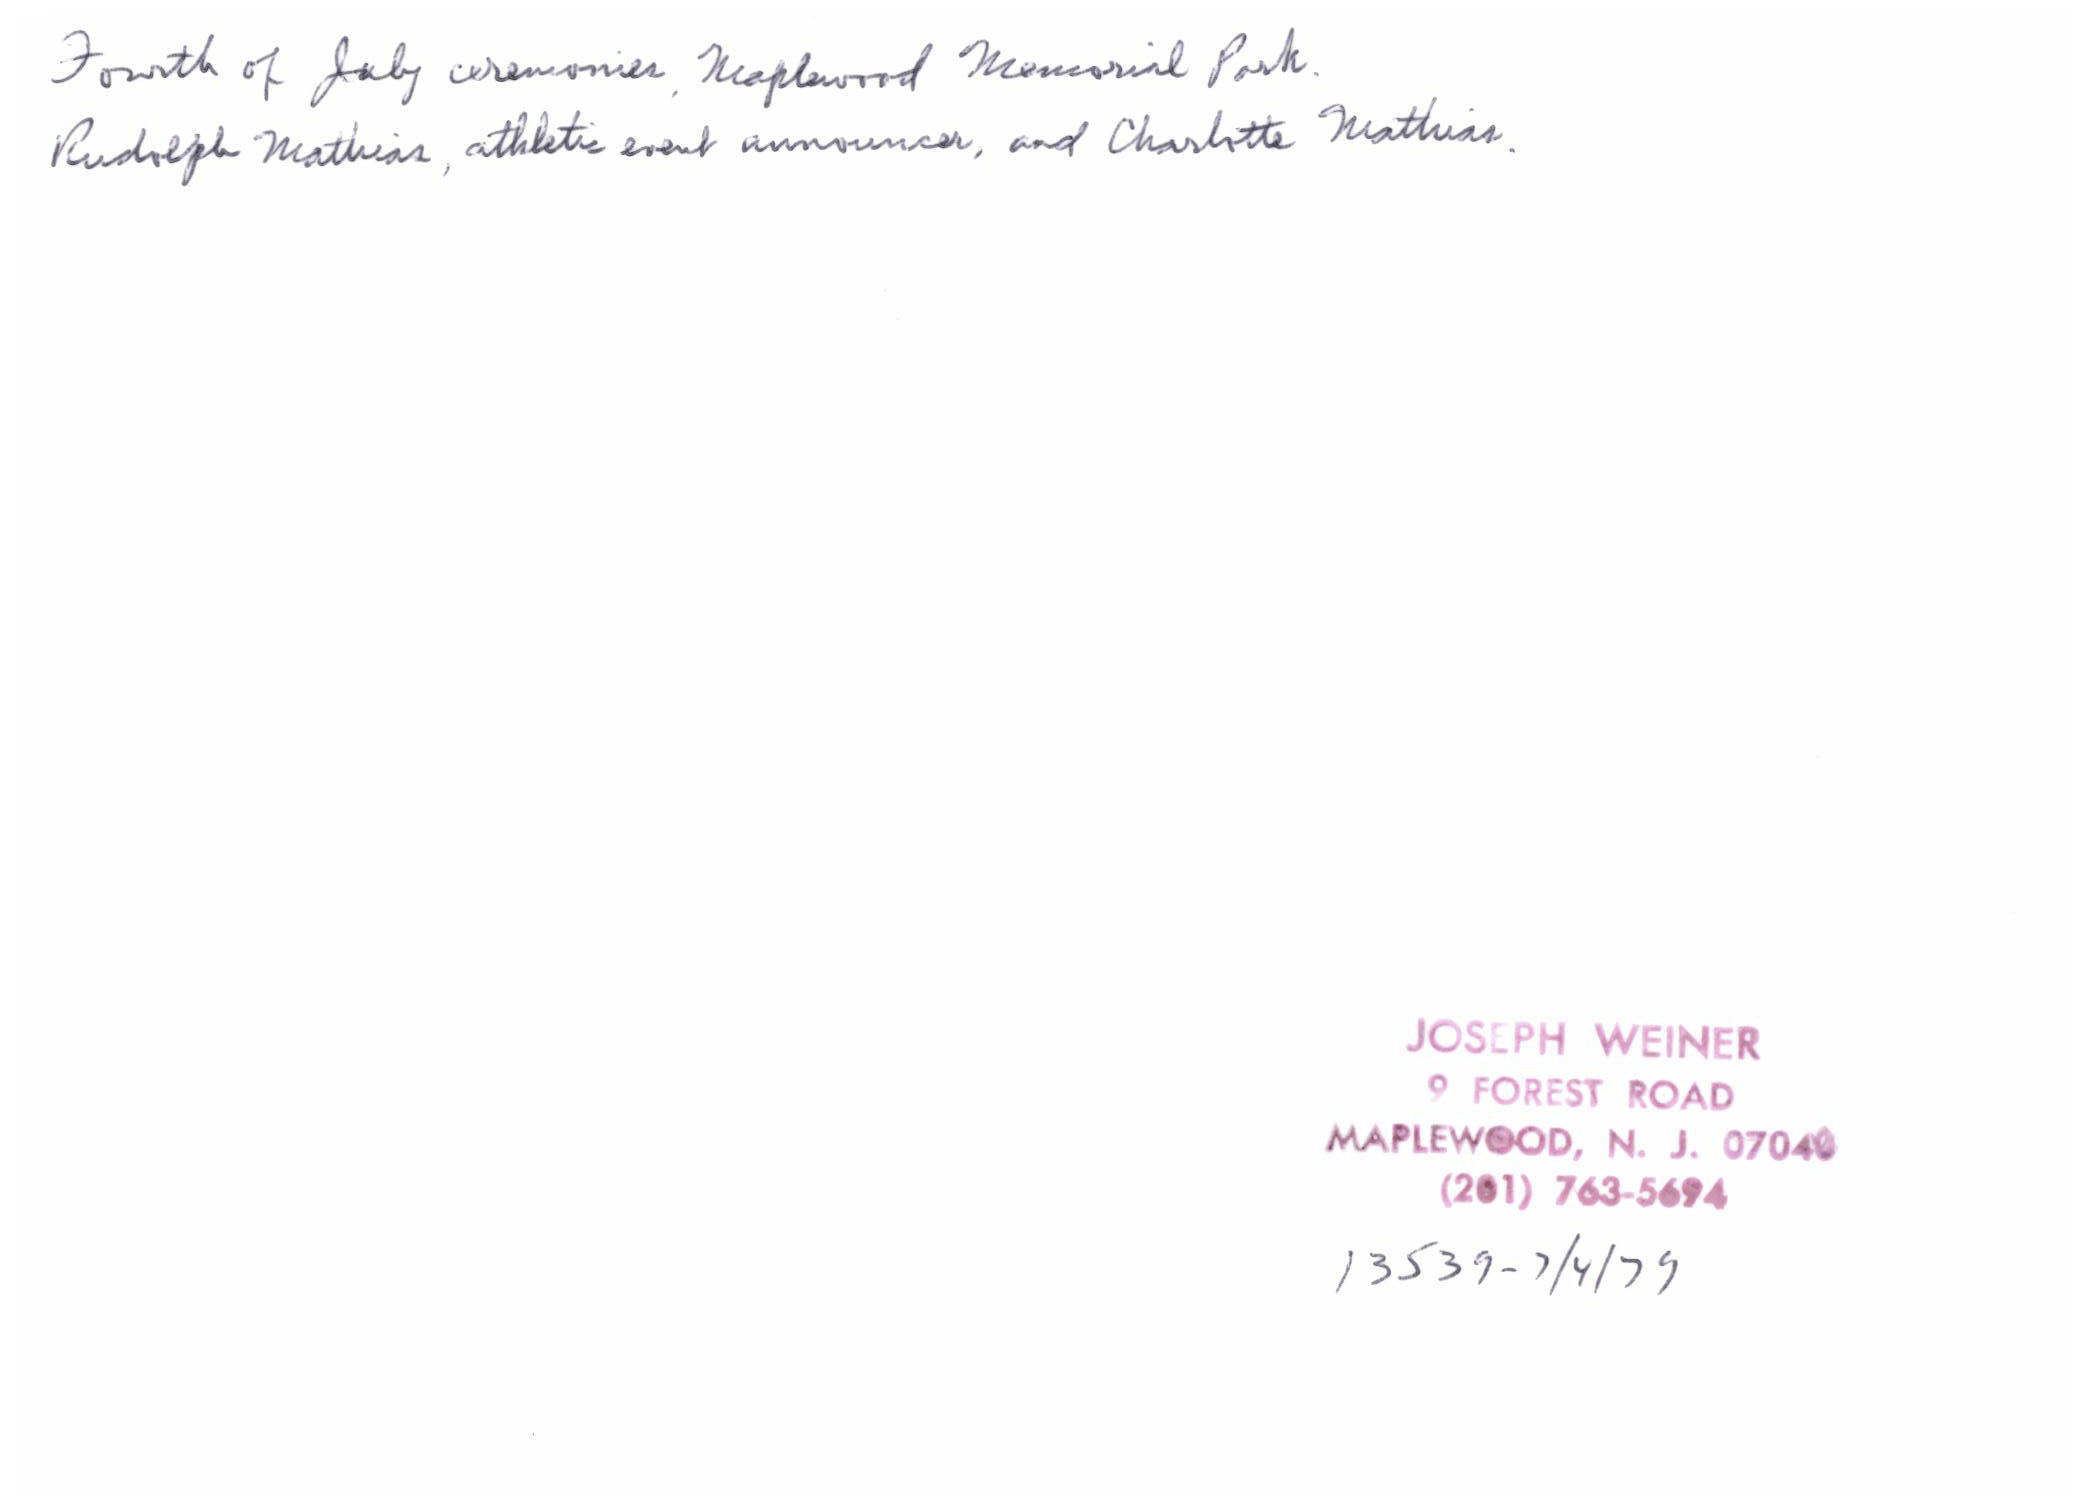 Fourth of July ceremonies, Maplewood Memorial Park.
Rudolph Mathias, athletic event announcer, and Charlotte Mathias.
JOSEPH WEINER
9 FOREST ROAD
MAPLEWOOD, N. J. 07040
(201) 763-5694
13539-7/4/79